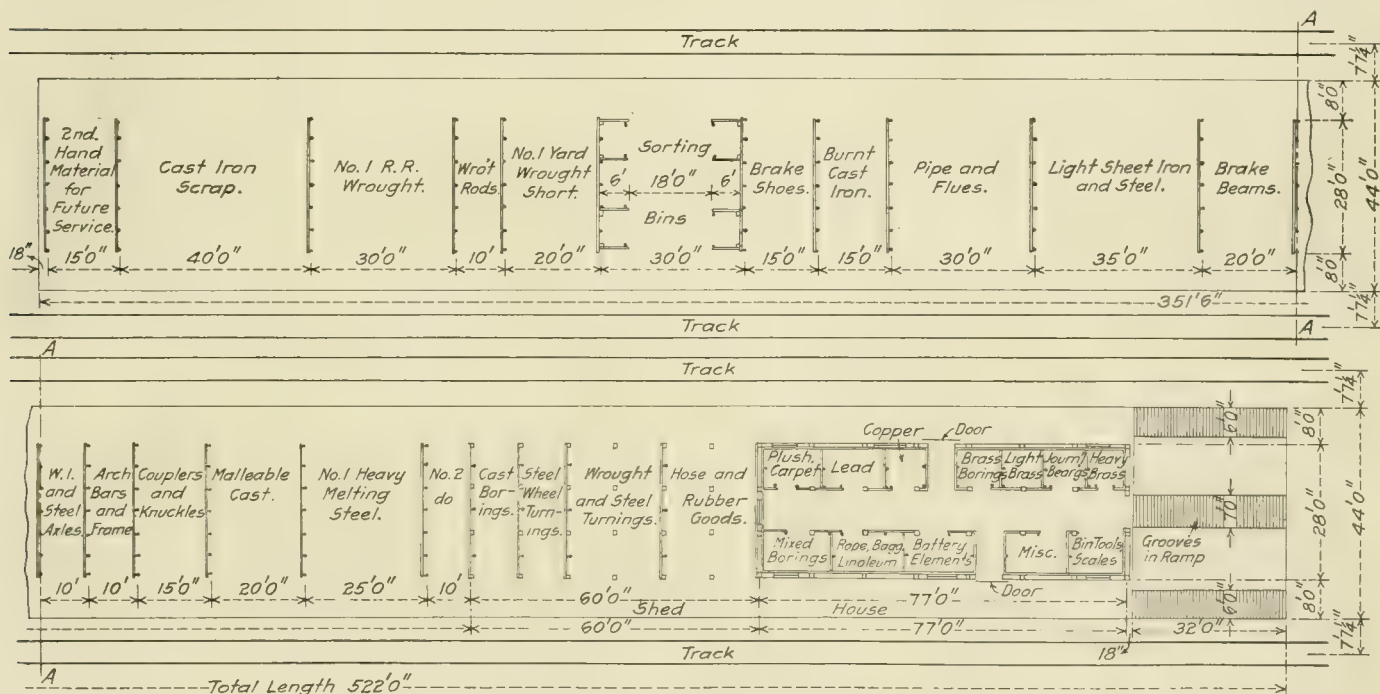 A
Track
7'7¼"
2nd.
Hand
Material
for
Future
Service.
Cast Iron
Scrap.
No. 1 R. R.
Wrought.
Wro't
Rods.
No. 1 Yard
Wrought
Short.
Sorting
6' 18'0" 6'
Bins
Brake
Shoes.
Burnt
Cast
Iron.
Pipe and
Flues.
Light Sheet Iron
and Steel.
Brake
Beams.
8'0"
28'0"
8'0"
44'0"
18" 15'0" 40'0" 30'0" 10' 20'0" 30'0" 15'0" 15'0" 30'0" 35'0" 20'0"
351'6"
7'7¼"
Track
A
A
Track
7'7¼"
W. I.
and
Steel
Axles.
Arch
Bars
and
Frame
Couplers
and
Knuckles
Malleable
Cast.
No. 1 Heavy
Melting
Steel.
No. 2
do
Cast
Bor-
ings.
Steel
Wheel
Turn-
ings.
Wrought
and Steel
Turnings.
Hose and
Rubber
Goods.
Copper
Door
Plush,
Carpet
Lead
Brass
Borings
Light
Brass
Journ'l
Bear'gs
Heavy
Brass
Mixed
Borings
Rope, Bagg.
Linoleum
Battery
Elements
Misc.
Bin Tools,
Scales
Door
Grooves
in Ramp
6'0"
7'0"
6'0"
8'0"
28'0"
8'0"
44'0"
10' 10' 15'0" 20'0" 25'0" 10' 60'0" 77'0"
Shed
House
60'0" 77'0" 18" 32'0"
7'7¼"
Track
A
Total Length 522'0"